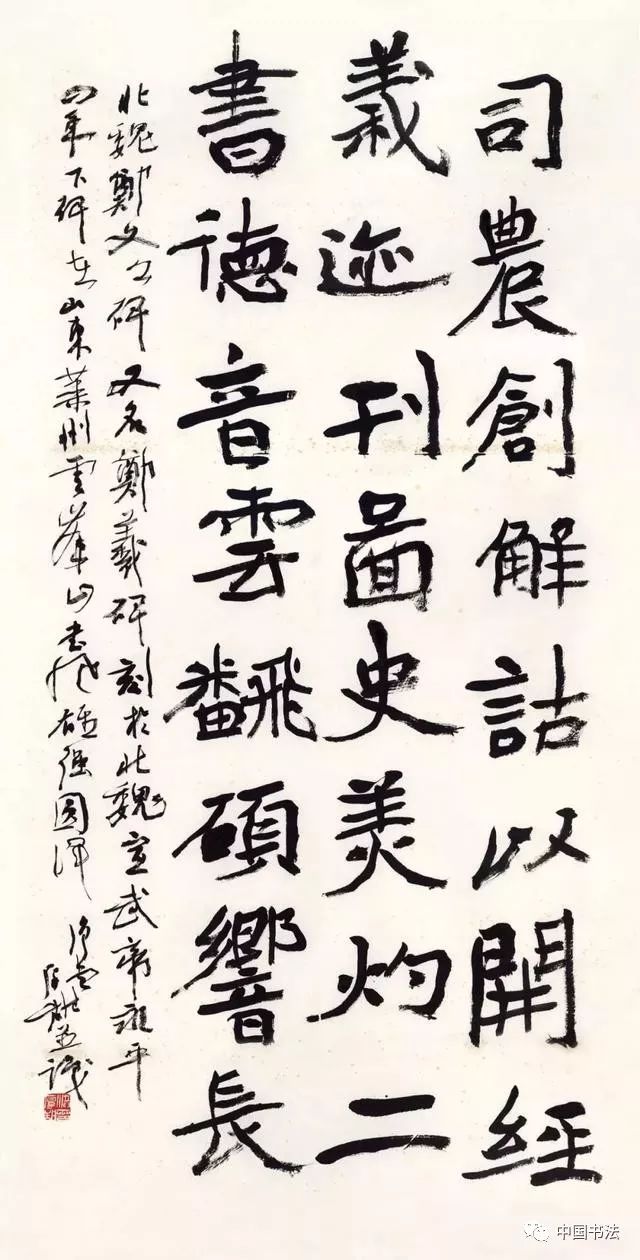 司農創解詁以開經
義迹刊圖史美灼二
書德音雲飜碩響長
北魏鄭文公碑又名鄭羲碑刻於北魏宣武帝永平
四年下碑在山東萊州雲峯山書法雄強圓渾
中国书法